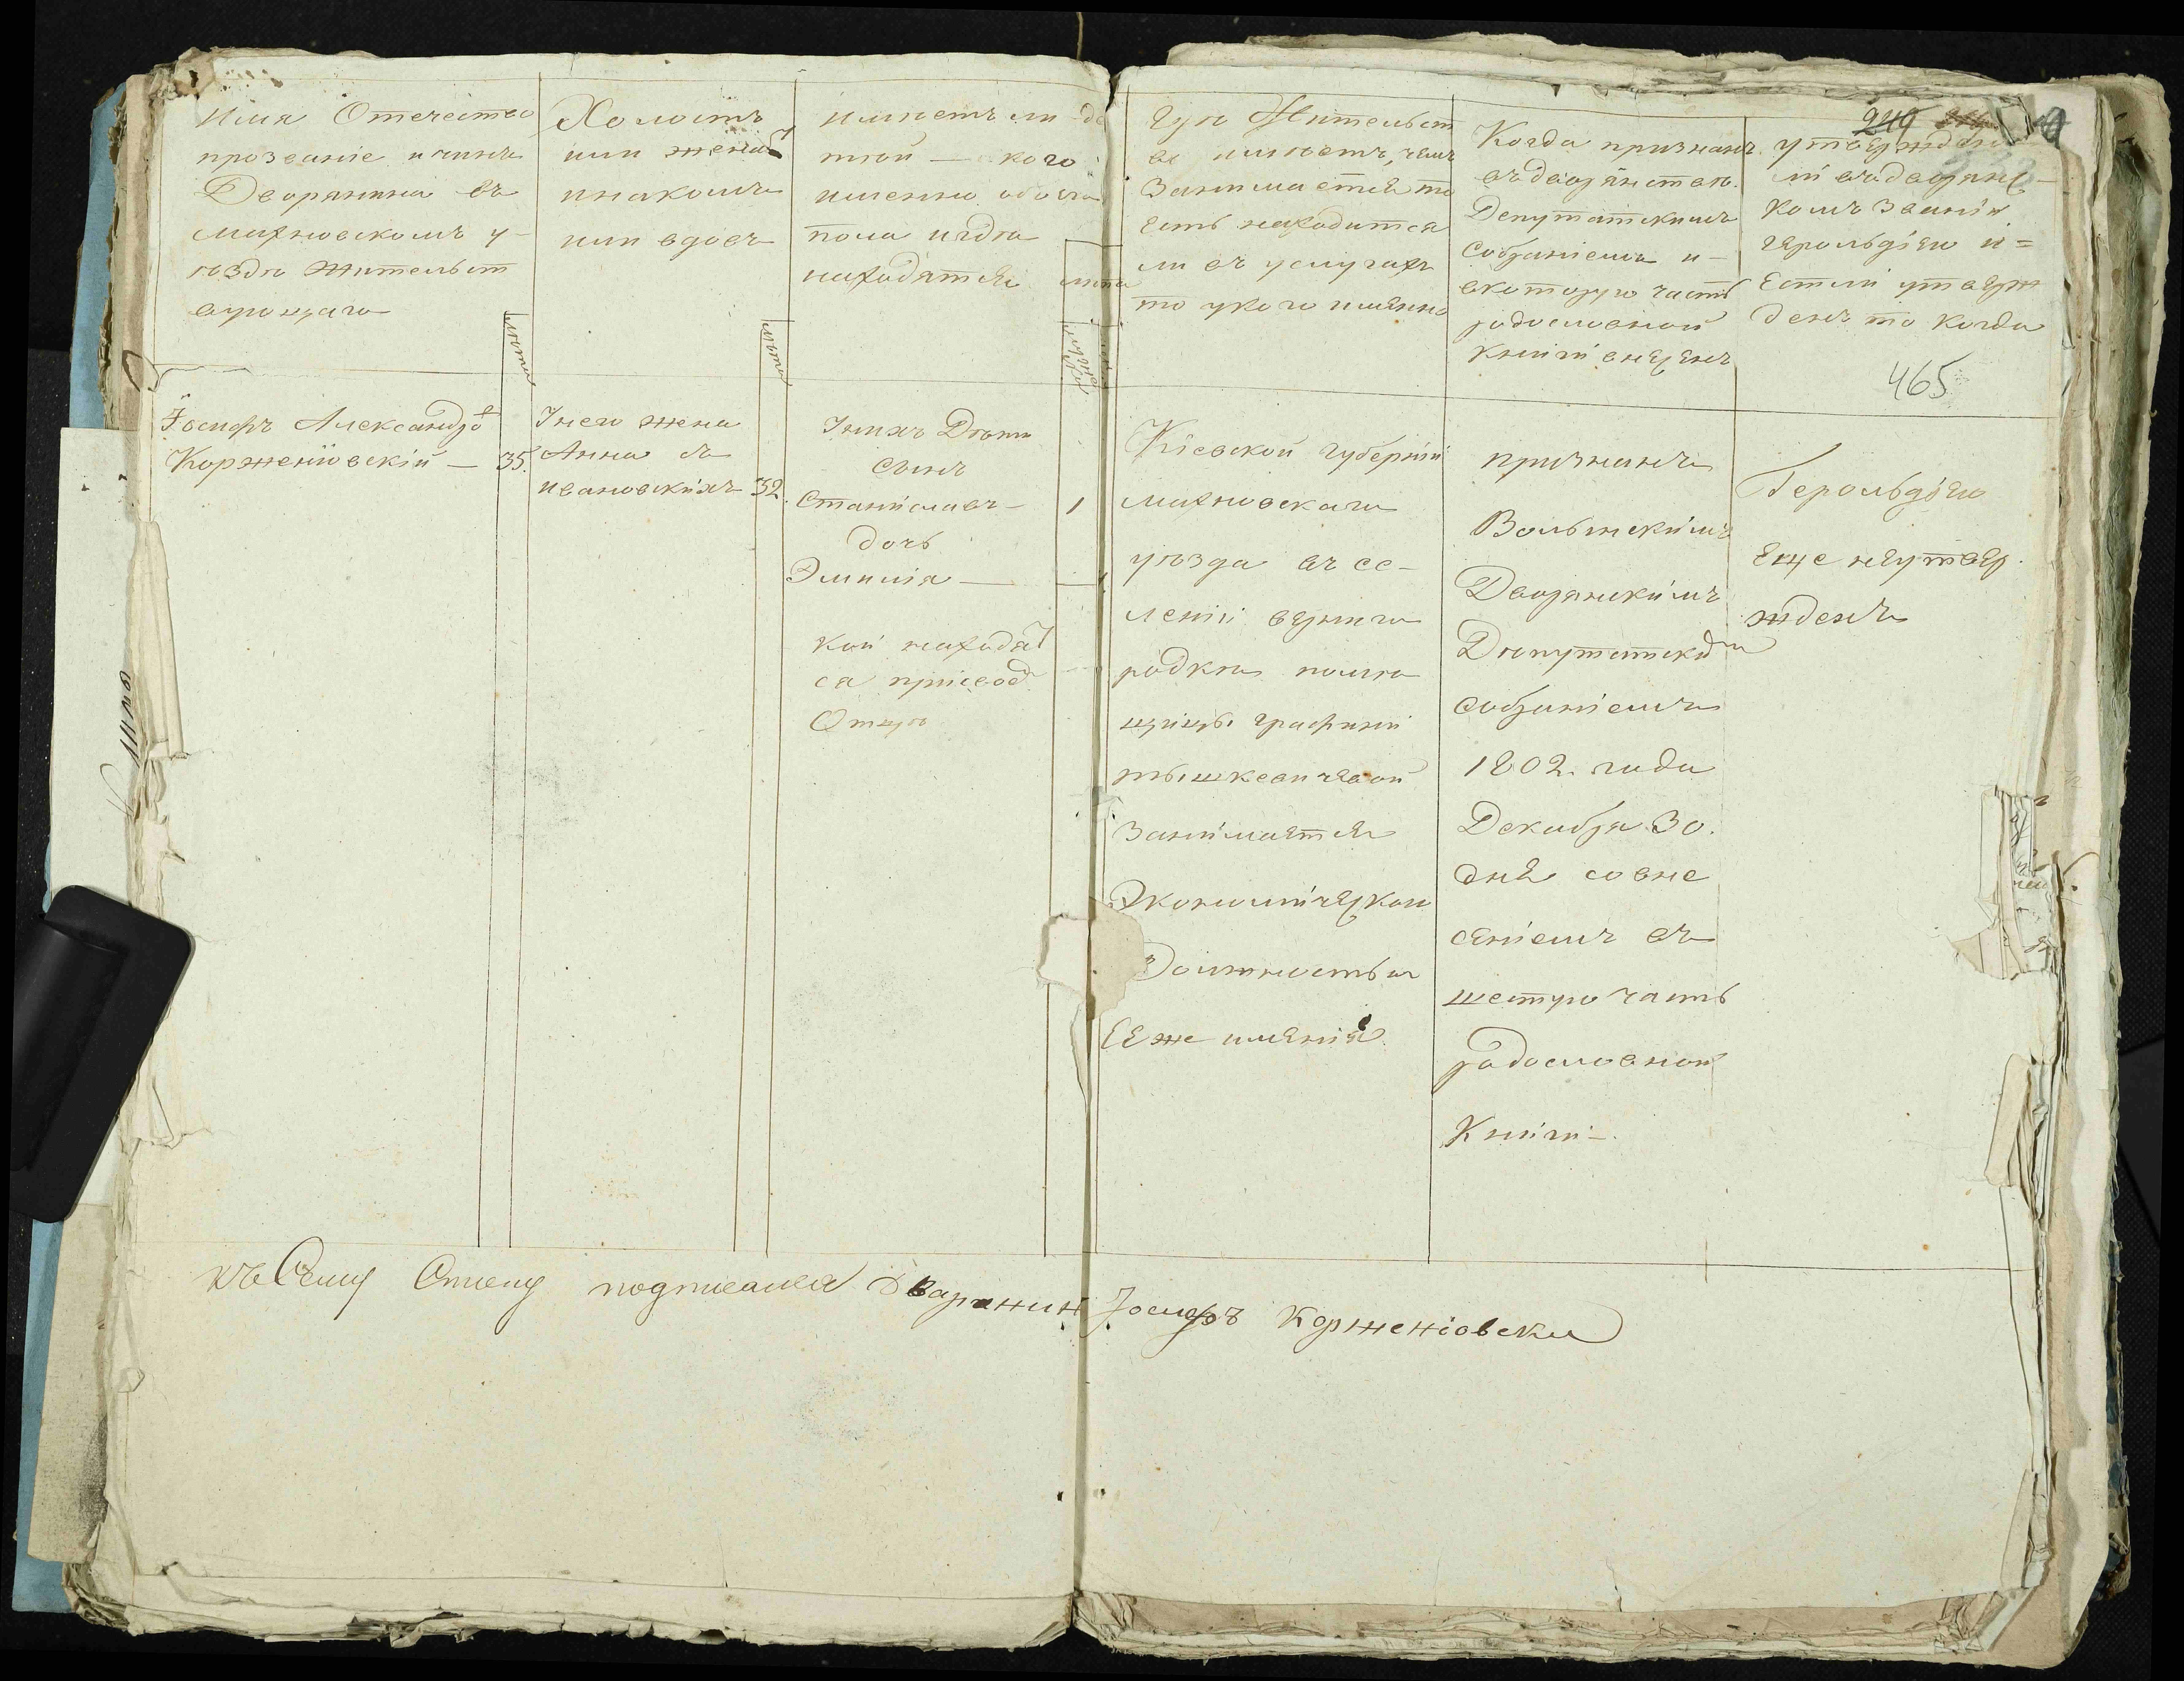 Имя Отечество
прозваніе и чинъ
Дворянина въ
махновскомъ у-
ѣздѣ жительст
вующаго
лѣта
Холостъ
или женатъ
инакомъ
или вдовъ
лѣта
имѣетъ ли дѣ
тей — кого
именно обоего
пола и гдѣ
находятся
лѣта
Гдѣ Жительст
во имѣетъ, чемъ
Занимается то
есть находится
ли въ услугахъ
то укого имянно
Когда признанъ
въ дворянствѣ
Депутатскимъ
собраніемъ и-
вкоторую часть
родословной
книги внесенъ
утвержденъ
ли въ дворянс-
комъ званіи
герольдіею и=
Естли утверж
денъ то когда
219
465
Іосифъ Александро
Корженіовскій — 35.
Унего жена
Анна съ
ивановскихъ 32.
Унихъ Дѣти
сынъ
Станіславъ — 1
дочь
Эмилія —
кои находят
ся присвоемъ
Отцѣ
Кіевской губерніи
махновскаго
уѣзда въ се-
леніи верхнего
родкѣ помѣ
щицы графини
тышкевичевой
Занимается
Экономическою
Должностью
Ее же имения
признанъ
Волынскимъ
Дворянскимъ
Депутатским
собраніемъ
1802. года
Декабря 30.
дня совне
сеніемъ въ
шестую часть
родословной
Книги —.
Герольдіею
еще неутвер
жденъ
къ Сему Списку подписался дваранин Іосифъ Корженіовски